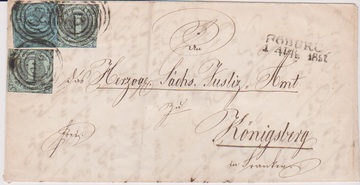 COBURG
An
das Herzogl. Sächs. Justiz-Amt
zu
Königsberg
in Franken